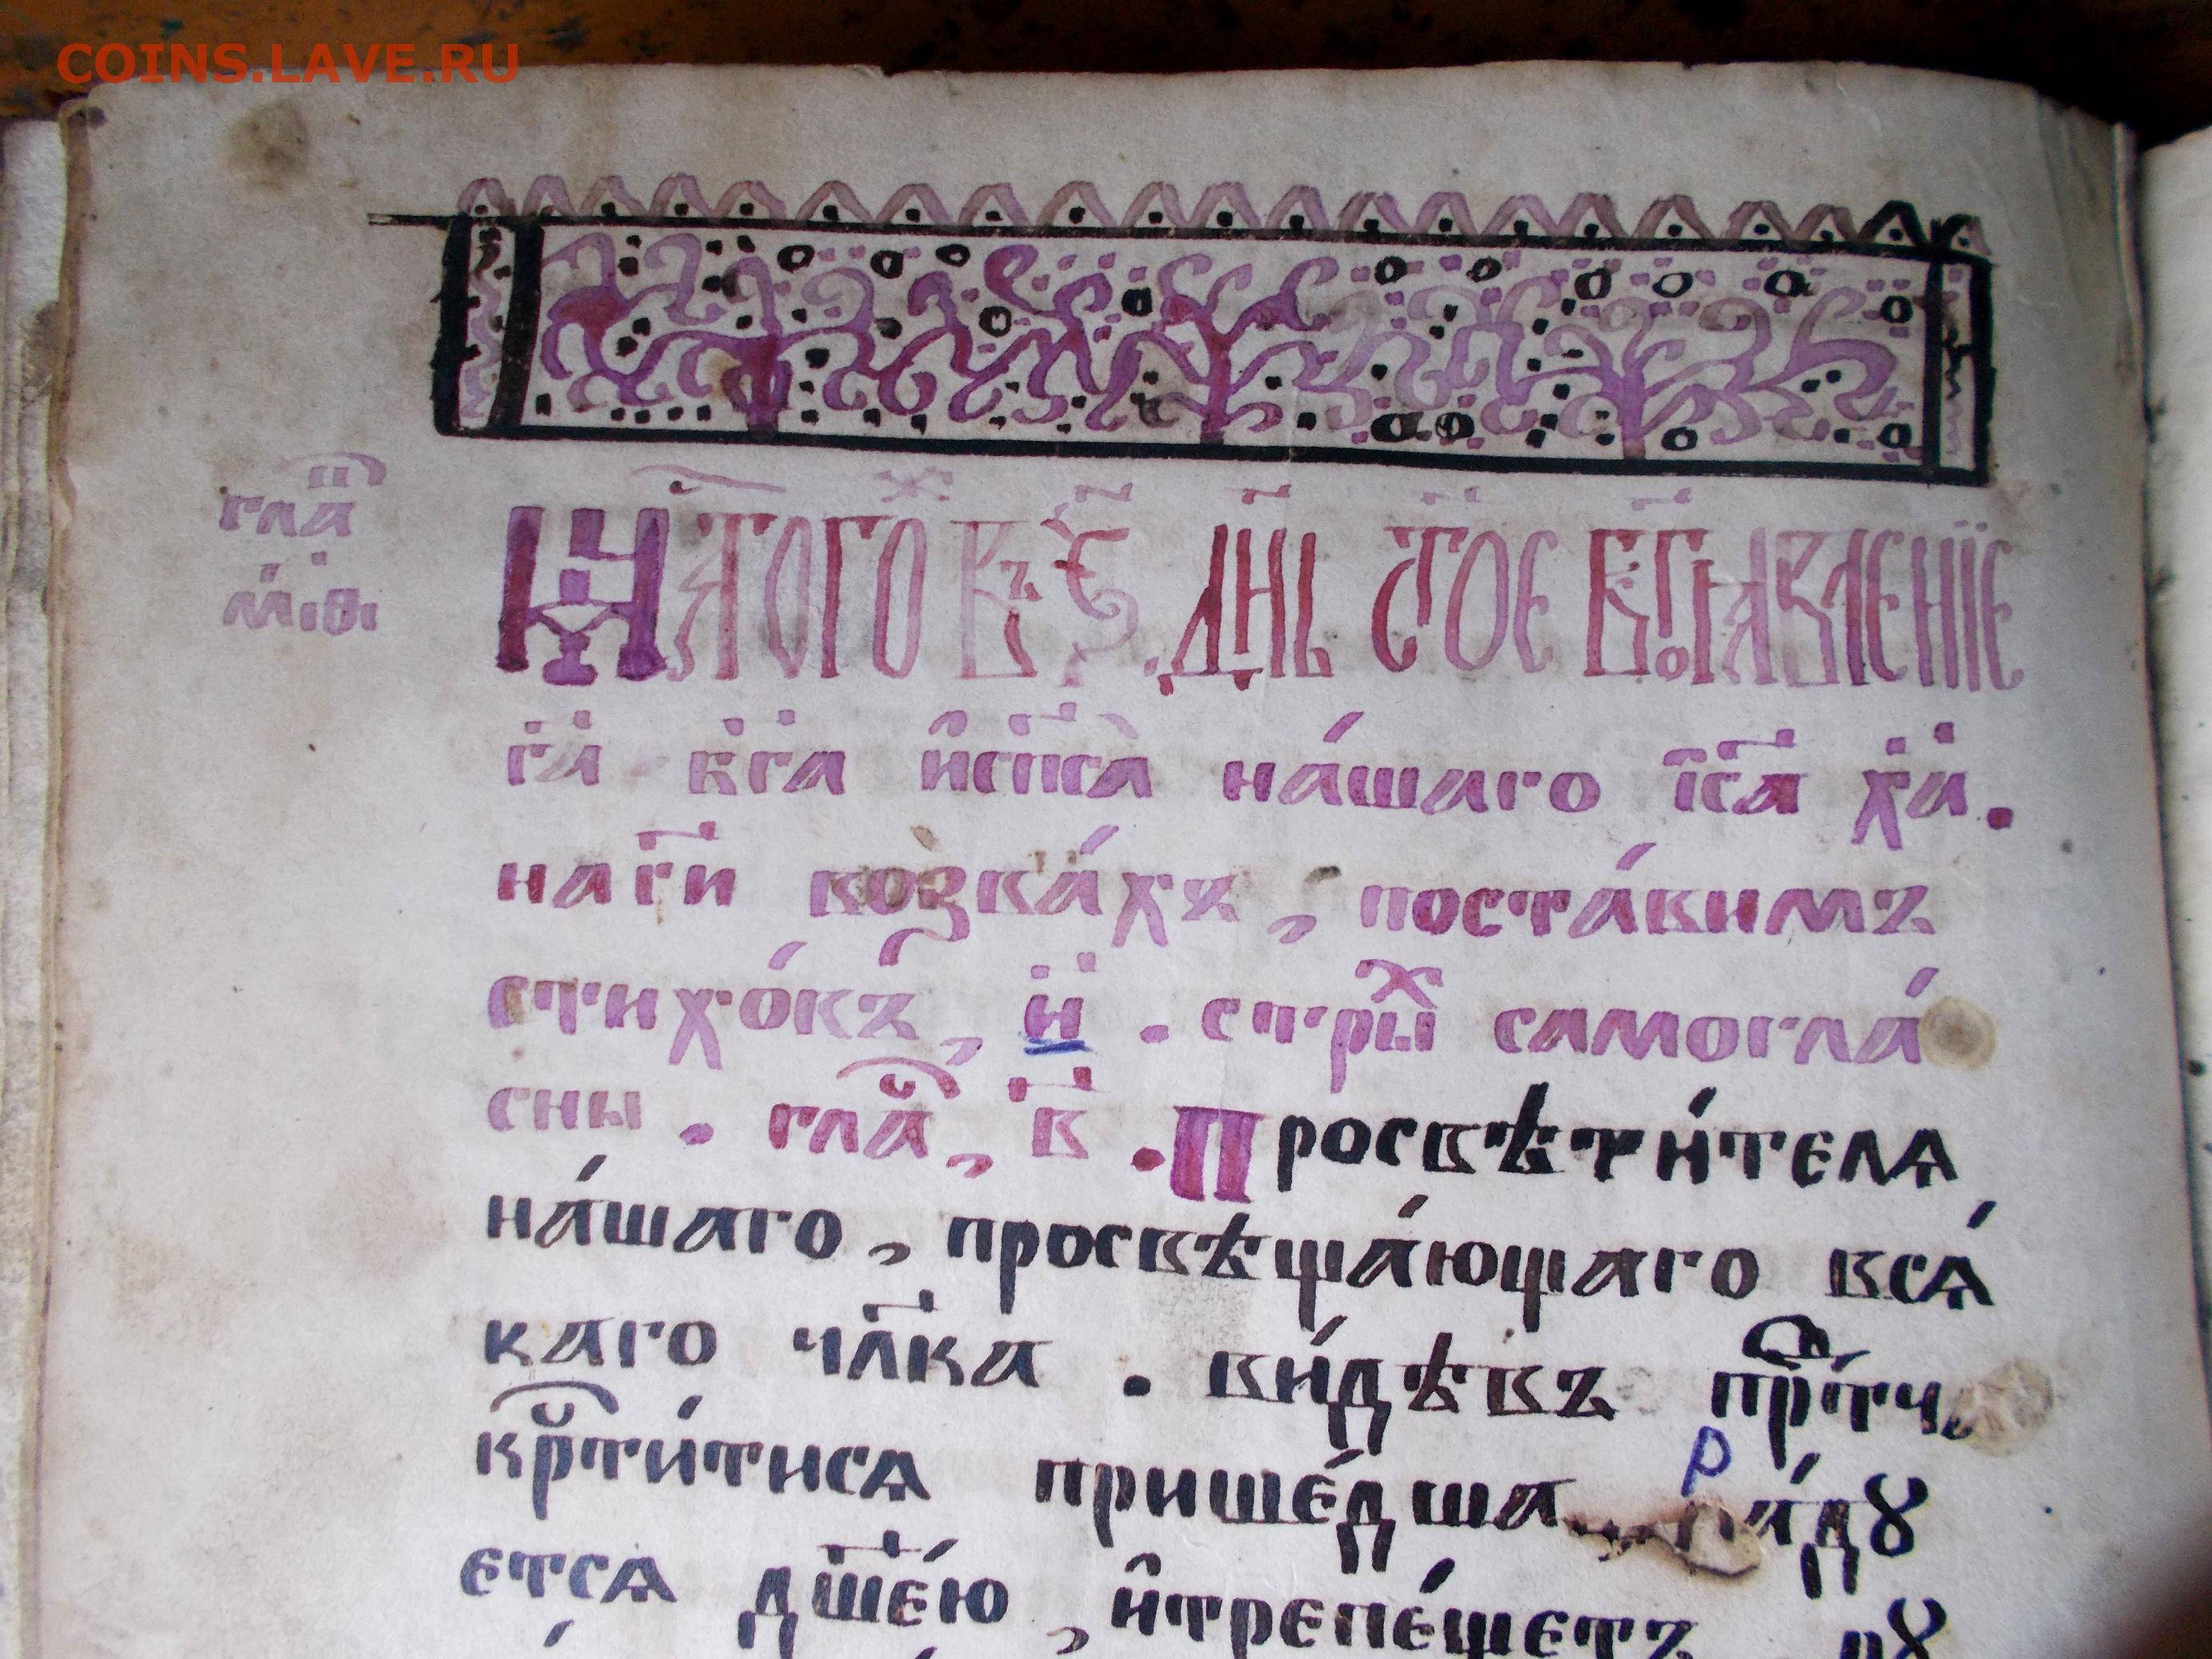 COINS.LAVE.RU
гла҃
М҃ЦАТОГО ВЪ Ѕ҃ . ДН҃Ь С҃ТОЕ БГ҃ОꙖВЛЕНІЕ
г҃а б҃га и҆сп҃са на́шего і҆с҃а х҃а .
на г҃и воззва́хъ , поста́вимъ
стихо́въ , и҃ . ст҇ры самогла́
сны . гла҃ , в҃ . Просвѣти́телѧ
на́шаго , просвѣща́ющаго всѧ́
каго чл҃ка . ви́дѣвъ пр҇тч
кр҇ти́тисѧ прише́дша ра́дꙋ
етсѧ дш҃е́ю , и҆трепе́щетъ рꙋ
р